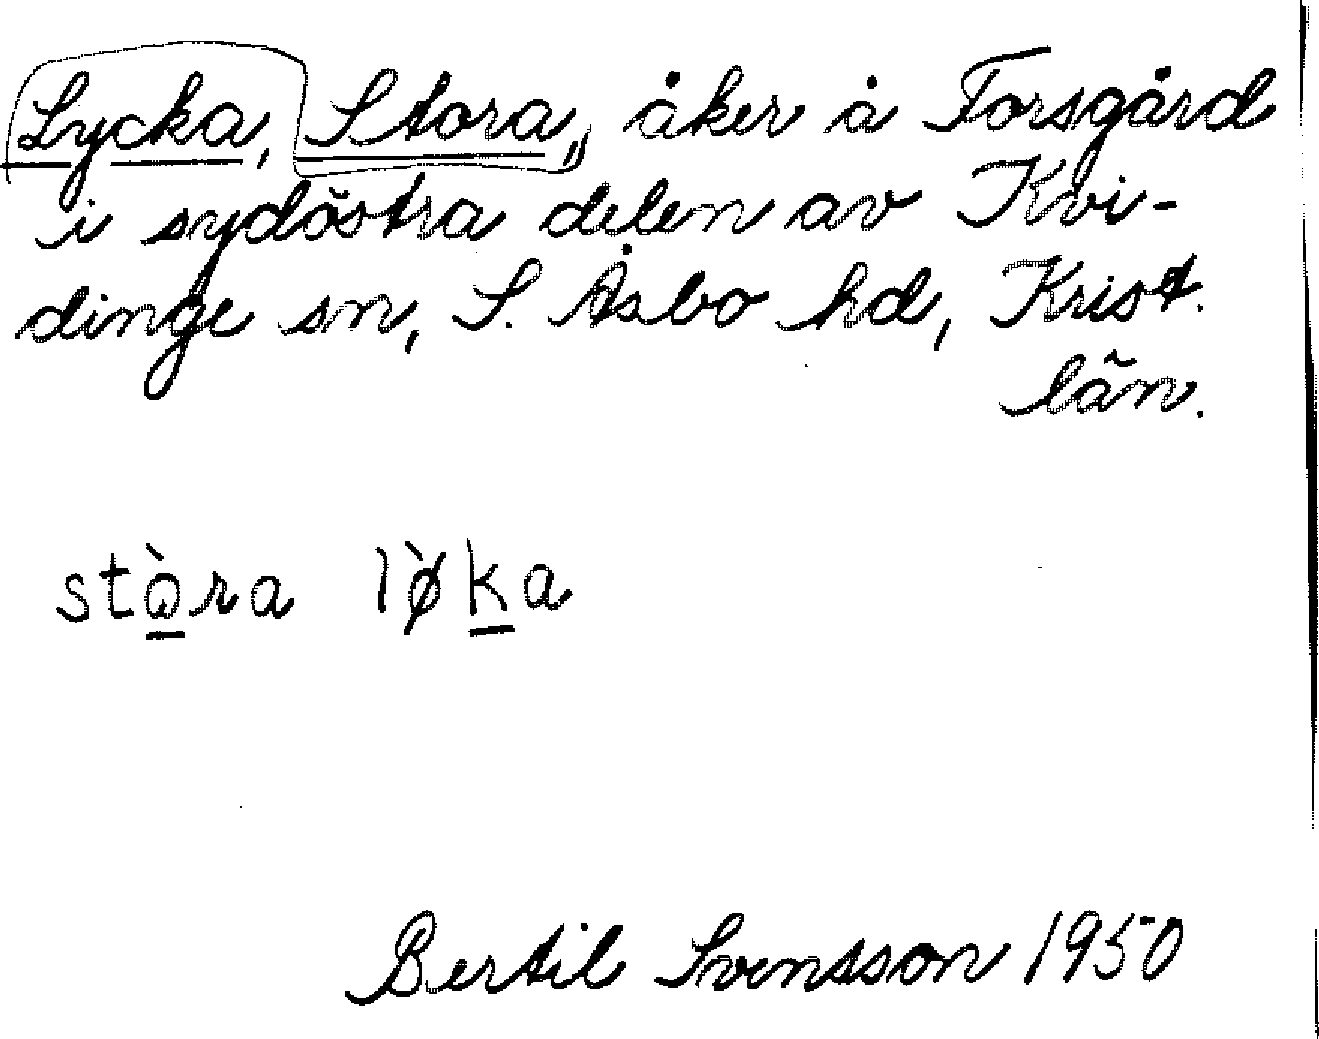 Lycka, Stora, åker å Forsgård
i sydöstra delen av Kvi-
dinge sn, S. Åsbo hd, Krist.
län.
stò̱ra lø̀ḵa
Bertil Svensson 1950